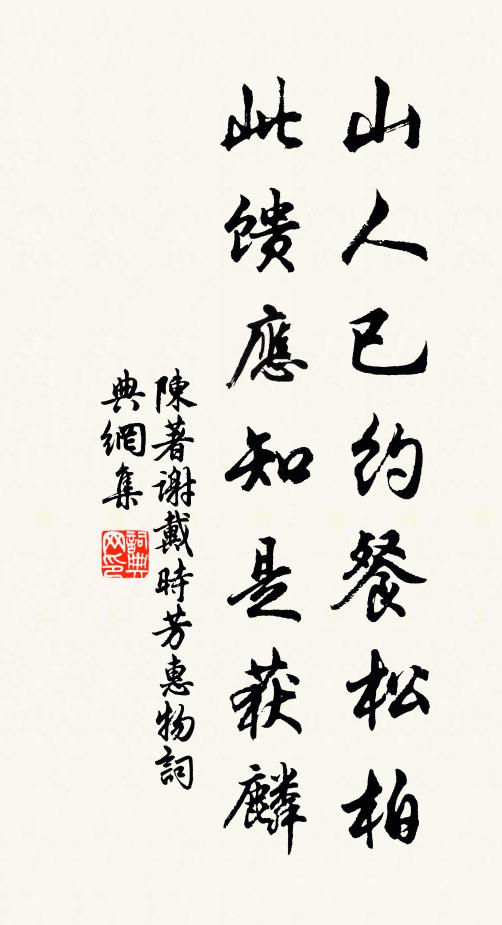 山人已約餐松柏
此饋應知是获麟
陳著謝戴時芳惠物詞
典網集
詞典网印